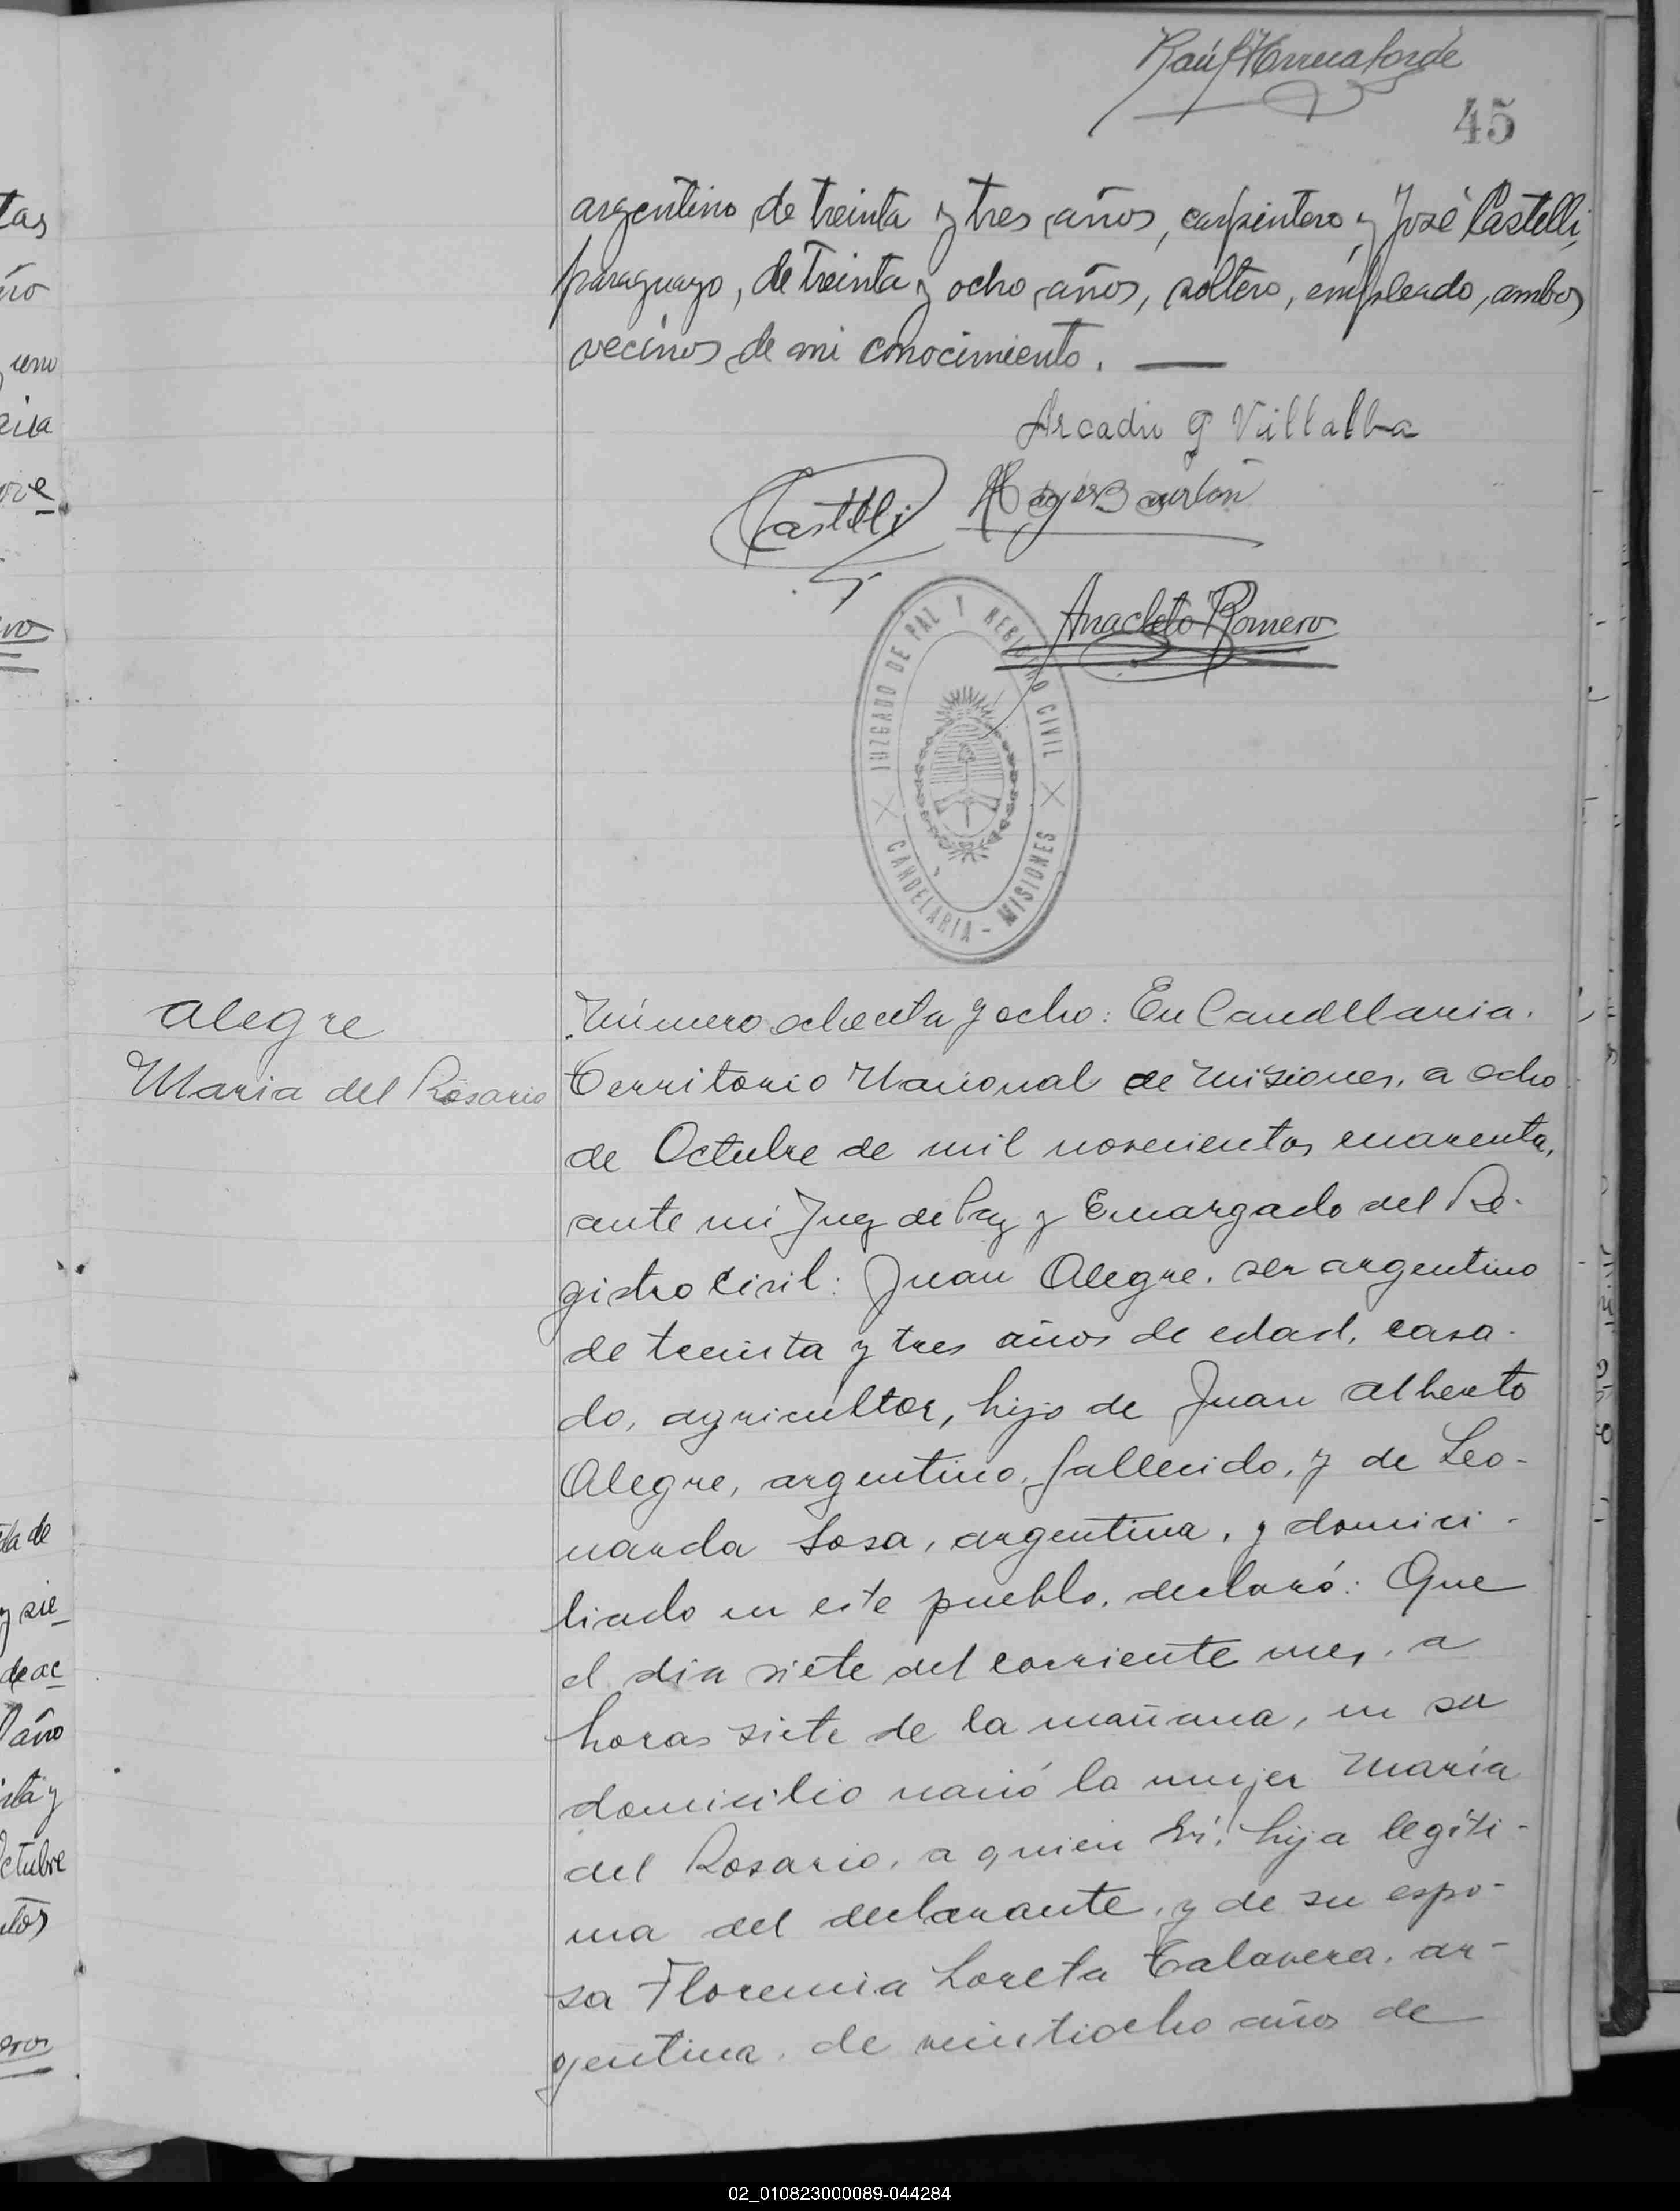 45
argentino de treinta y tres años, carpintero y José Castelli,
paraguayo, de treinta y ocho años, soltero, empleado, ambos
vecinos de mi conocimiento.
Arcadio G Villalba
Castelli
Anacleto Romero
JUZGADO DE PAZ Y REGISTRO CIVIL
CANDELARIA - MISIONES
Alegre
Maria del Rosario
Número ochenta y ocho: En Candelaria.
Territorio Nacional de Misiones, a ocho
de Octubre de mil novecientos cuarenta,
ante mi Juez de Paz y Encargado del Re-
gistro Civil: Juan Alegre, ser argentino
de treinta y tres años de edad, casa-
do, agricultor, hijo de Juan Alberto
Alegre, argentino, fallecido, y de Leo-
narda Sosa, argentina, y domici-
liado en este pueblo, declaró: Que
el dia siete del corriente mes, a
horas siete de la mañana, en su
domicilio nació la mujer María
del Rosario, a quien hija legiti-
ma del declarante, y de su espo-
sa Florencia Loreta Talavera, ar-
gentina, de veintiocho años de
tas
da de
y sie
de oc
año
ctubre
02_010823000089-044284